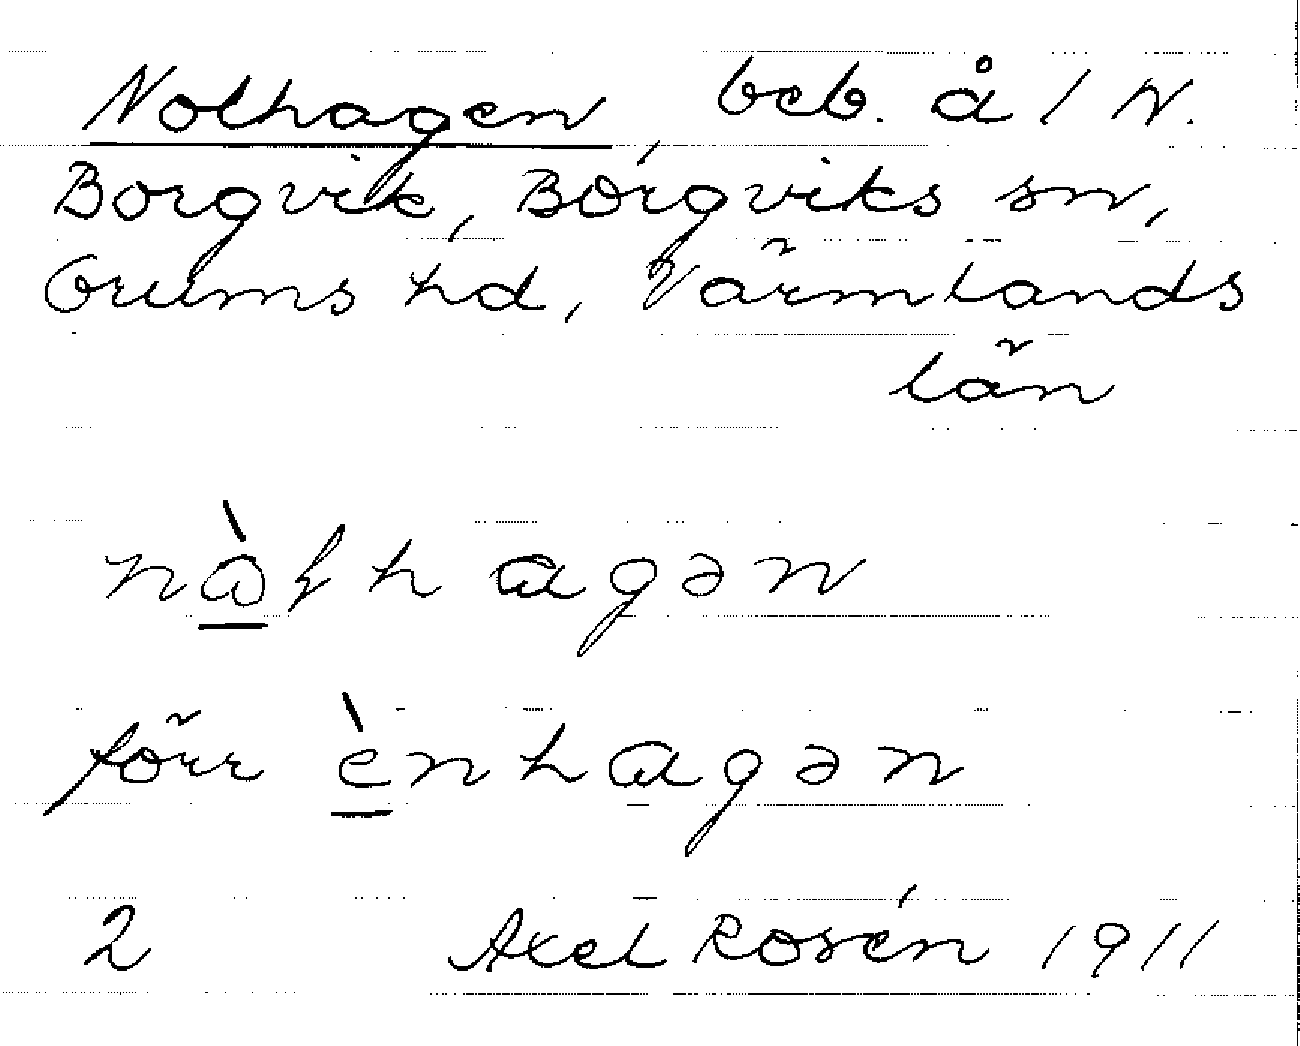 Nolhagen, beb. å 1 N.
Borgvik, Borgviks sn,
Grums hd, Värmlands
län
nàɽhagən
förr ènhagən
2 Axel Rosén 1911